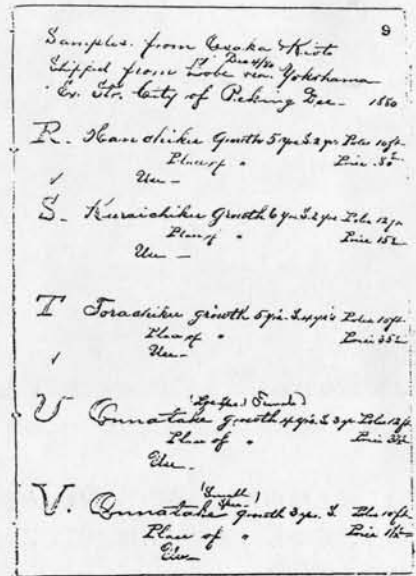 9
Samples from Osaka & Kioto
Shipped from Kobe via Yokohama
Ex. Str. City of Peking Dec. 1880
R. Hanchiku Growth 5 yrs. S. 2 yrs Poles 10 ft.
Place of " Price
Use —
S. Growth 6 yrs S. 2 yrs. Poles 12 ft
Place of " Price 15
Use —
T Torachiku growth 5 yrs. S. 4 yrs Poles 10 ft
Place of " Price 35
Use —
U Onnatake growth 4 yrs. S 3 yrs Poles 12 ft
Place of " Price
Use —
(Small)
V. Onnatake growth 3 yrs. S. Poles 10 ft
Place of " Price
Use —